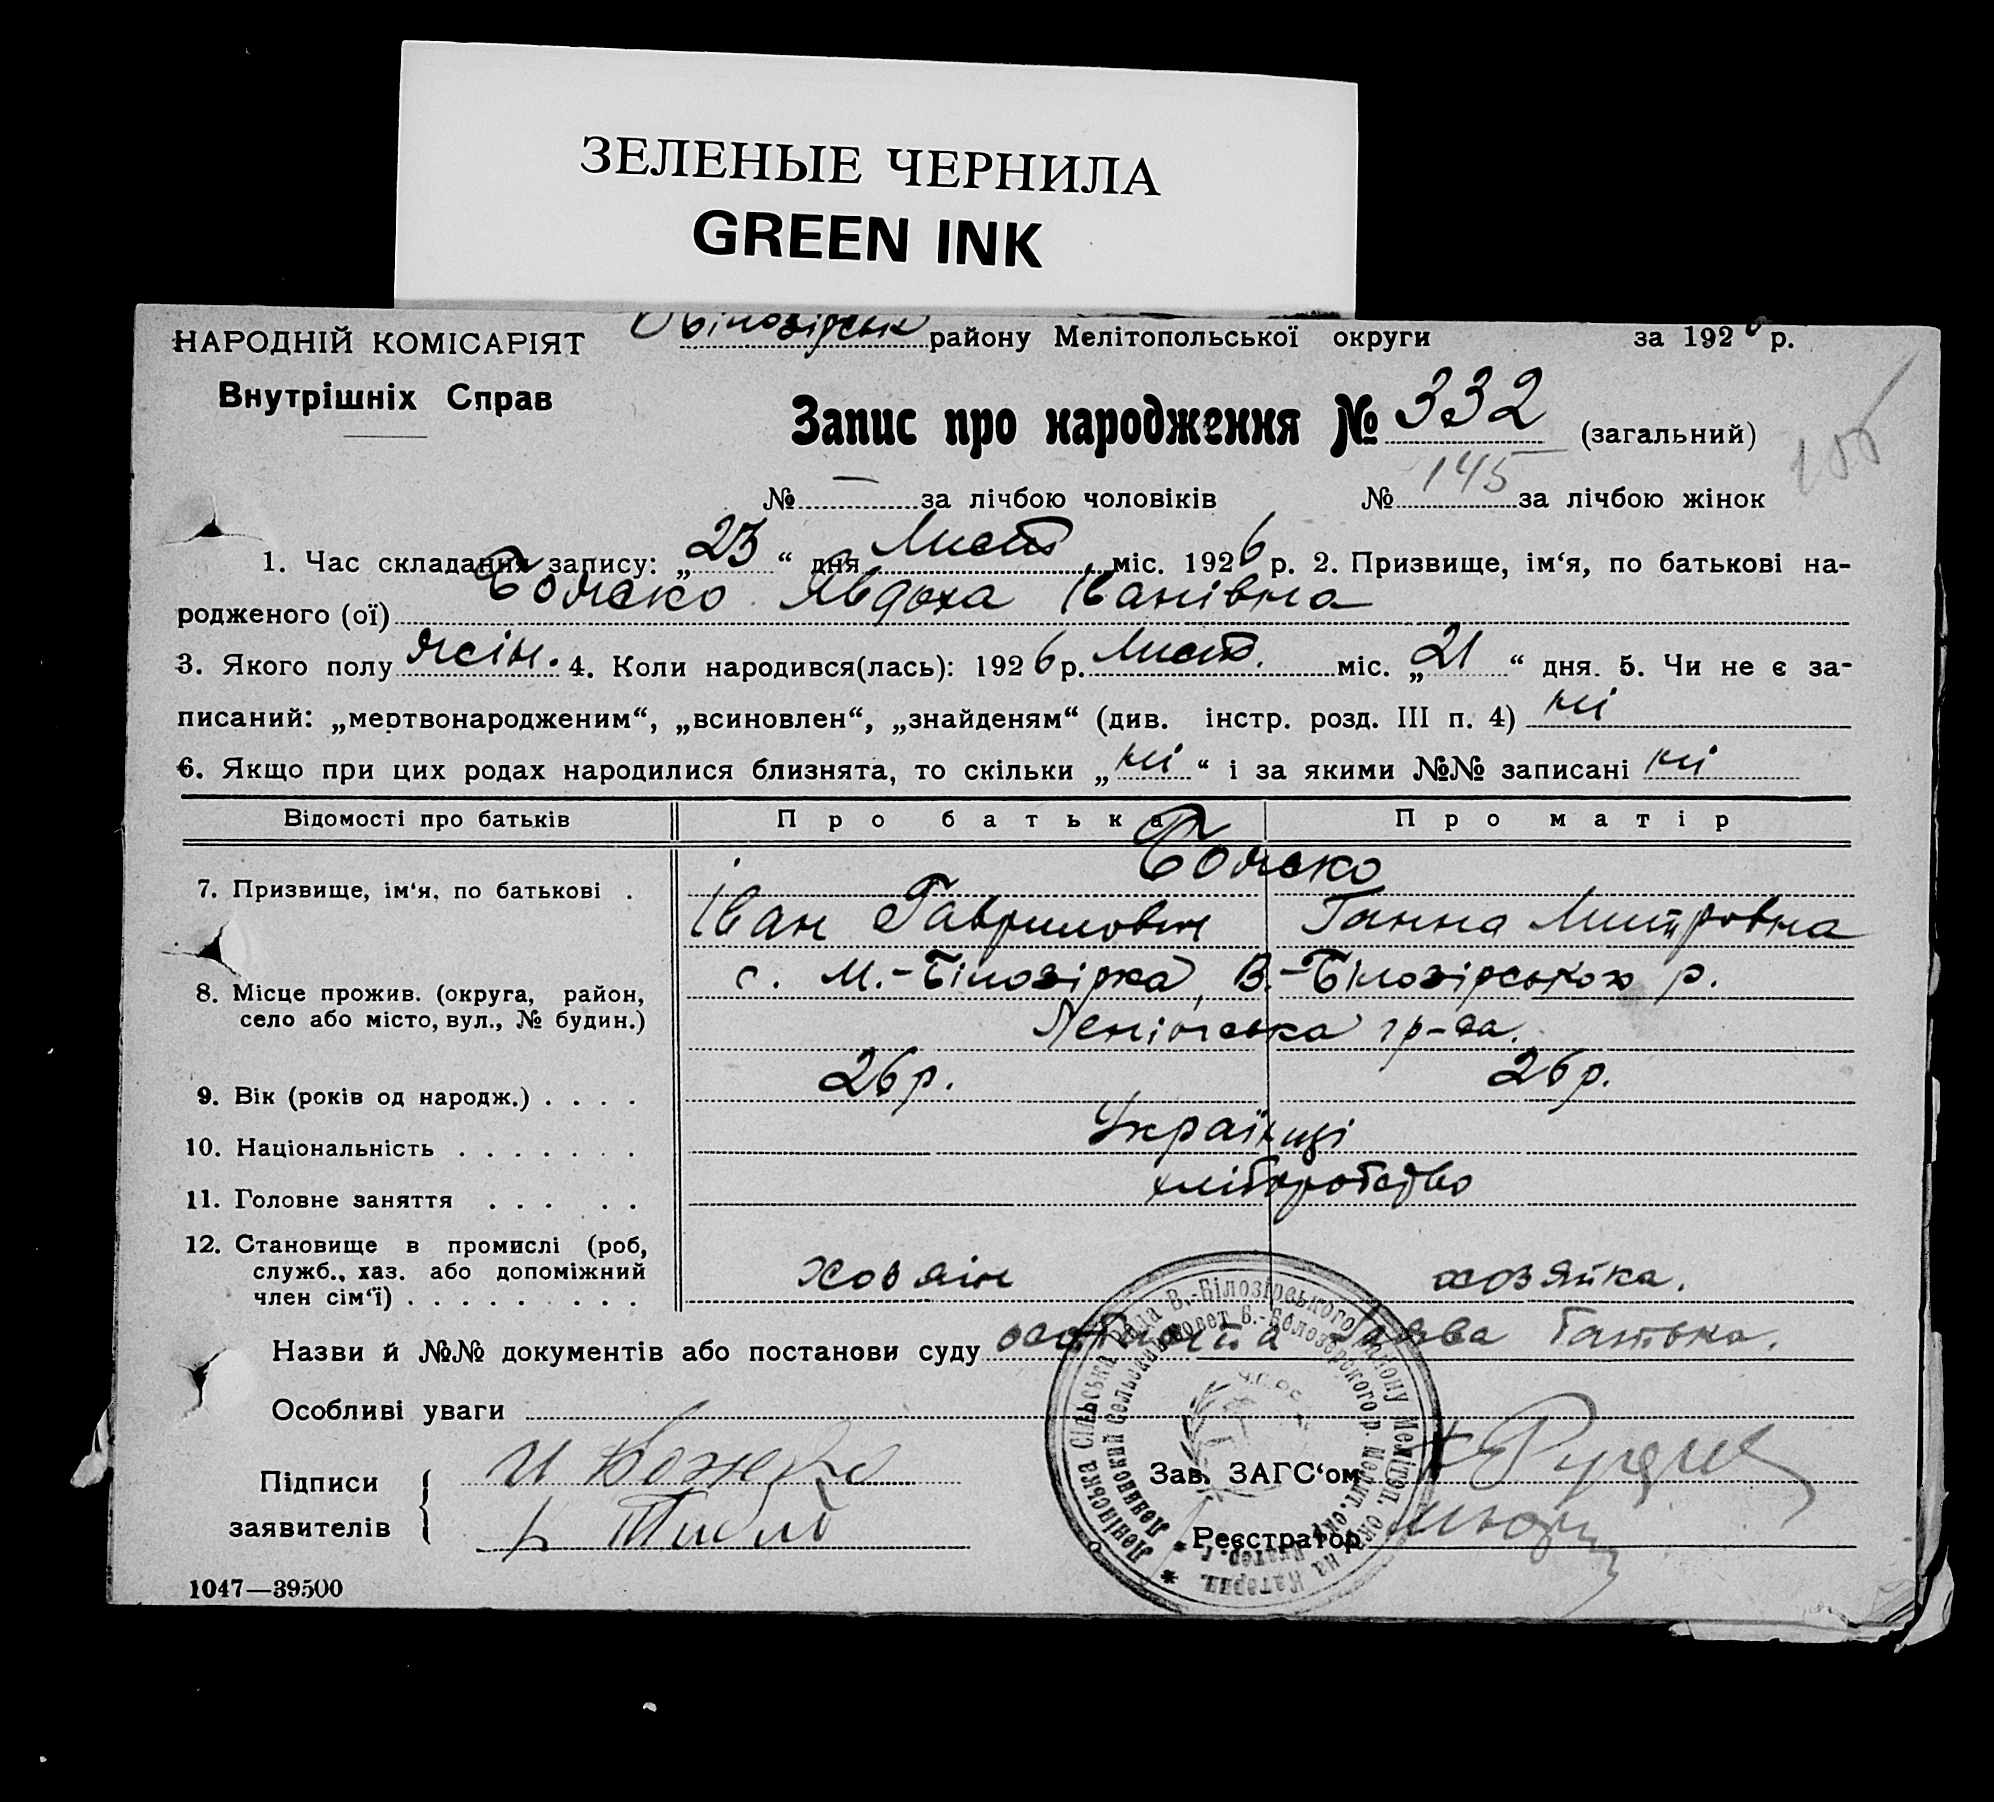 ЗЕЛЕНЫЕ ЧЕРНИЛА
GREEN INK
НАРОДНІЙ КОМІСАРІЯТ
Внутрішніх Справ
району Мелітопольської округи за 1926 р.
Запис про народження № 332 (загальний)
№ — за лічбою чоловіків № 145 за лічбою жінок
1. Час складання запису: „23“ дня Лист міс. 1926 р. 2. Призвище, ім‘я, по батькові на-
родженого (ої) Явдоха Іванівна
3. Якого полу жін. 4. Коли народився(лась): 1926 р. Лист. міс. „21“ дня. 5. Чи не є за-
писаний: „мертвонародженим“, „всиновлен“, „знайденям“ (див. інстр. розд. III п. 4) ні
6. Якщо при цих родах народилися близнята, то скільки „ні“ і за якими №№ записані ні
Відомості про батьків Про батька Про матір
7. Призвище, ім‘я, по батькові .
Іван Гаврилович Ганна Митровна
8. Місце прожив. (округа, район,
село або місто, вул., № будин.)
с. М.-Білозірка, В.-Білозірського р.
Ленінська
9. Вік (років од народж.) . . . . 26 р. 26 р.
10. Національність . . . . . . . Українці
11. Головне заняття . . . . . хліборобство
12. Становище в промислі (роб,
служб., хаз. або допоміжний
член сім‘ї) . . . . . . . . . хозяін хозяйка.
Назви й №№ документів або постанови суду особиста заява батька.
Особливі уваги
Підписи
заявителів
Зав. ЗАГС‘ом
Реєстратор
Ленінська Сільська Рада В.-Білозірського району Мелітоп. окр. на Катерин.
Ленинский Сельский Совет В.-Белозерского р. Мелит. окр.
1047—39500